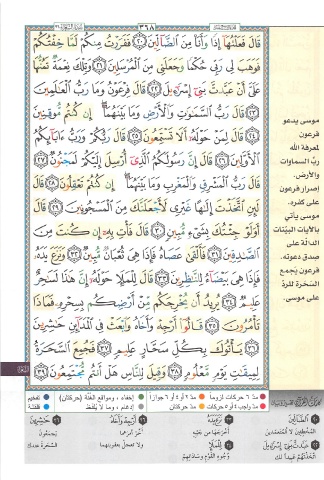 ٣٦٨
قَالَ فَعَلْتُهَا إِذًا وَأَنَا مِنَ الضَّالِّينَ ٢٠ فَفَرَرْتُ مِنكُمْ لَمَّا خِفْتُكُمْ
فَوَهَبَ لِي رَبِّي حُكْمًا وَجَعَلَنِي مِنَ الْمُرْسَلِينَ ٢١ وَتِلْكَ نِعْمَةٌ تَمُنُّهَا
عَلَيَّ أَنْ عَبَّدتَّ بَنِي إِسْرَائِيلَ ٢٢ قَالَ فِرْعَوْنُ وَمَا رَبُّ الْعَالَمِينَ
٢٣ قَالَ رَبُّ السَّمَاوَاتِ وَالْأَرْضِ وَمَا بَيْنَهُمَا إِن كُنتُم مُّوقِنِينَ
٢٤ قَالَ لِمَنْ حَوْلَهُ أَلَا تَسْتَمِعُونَ ٢٥ قَالَ رَبُّكُمْ وَرَبُّ آبَائِكُمُ
الْأَوَّلِينَ ٢٦ قَالَ إِنَّ رَسُولَكُمُ الَّذِي أُرْسِلَ إِلَيْكُمْ لَمَجْنُونٌ ٢٧
قَالَ رَبُّ الْمَشْرِقِ وَالْمَغْرِبِ وَمَا بَيْنَهُمَا إِن كُنتُمْ تَعْقِلُونَ ٢٨ قَالَ
لَئِنِ اتَّخَذْتَ إِلَهًا غَيْرِي لَأَجْعَلَنَّكَ مِنَ الْمَسْجُونِينَ ٢٩ قَالَ
أَوَلَوْ جِئْتُكَ بِشَيْءٍ مُّبِينٍ ٣٠ قَالَ فَأْتِ بِهِ إِن كُنتَ مِنَ
الصَّادِقِينَ ٣١ فَأَلْقَى عَصَاهُ فَإِذَا هِيَ ثُعْبَانٌ مُّبِينٌ ٣٢ وَنَزَعَ يَدَهُ
فَإِذَا هِيَ بَيْضَاءُ لِلنَّاظِرِينَ ٣٣ قَالَ لِلْمَلَإِ حَوْلَهُ إِنَّ هَذَا لَسَاحِرٌ
عَلِيمٌ ٣٤ يُرِيدُ أَن يُخْرِجَكُم مِّنْ أَرْضِكُم بِسِحْرِهِ فَمَاذَا
تَأْمُرُونَ ٣٥ قَالُوا أَرْجِهْ وَأَخَاهُ وَابْعَثْ فِي الْمَدَائِنِ حَاشِرِينَ
٣٦ يَأْتُوكَ بِكُلِّ سَحَّارٍ عَلِيمٍ ٣٧ فَجُمِعَ السَّحَرَةُ
لِمِيقَاتِ يَوْمٍ مَّعْلُومٍ ٣٨ وَقِيلَ لِلنَّاسِ هَلْ أَنتُم مُّجْتَمِعُونَ ٣٩
موسى يدعو
فرعون
لمعرفة الله
ربّ السماوات
والأرض.
إصرار فرعون
على كفره.
موسى يأتي
بالآيات البيّنات
الدالّة على
صدق دعوته.
فرعون يُجمع
السحرة للردّ
على موسى.
مدّ ٦ حركات لزوماً
مدّ ٢ أو ٤ أو ٦ جوازاً
إخفاء، ومواقع الغُنَّة (حركتان)
تفخيم
مدّ واجب ٤ أو ٥ حركات
مدّ حركتان
إدغام، وما لا يُلفظ
قلقلة
الضَّالِّينَ
عَبَّدتَّ بَنِي إِسْرَائِيلَ
لِلْمَلَإِ
وُجوهِ القَوْمِ وَسَادَاتِهِمْ
أَرْجِهْ وَأَخَاهُ
حَاشِرِينَ